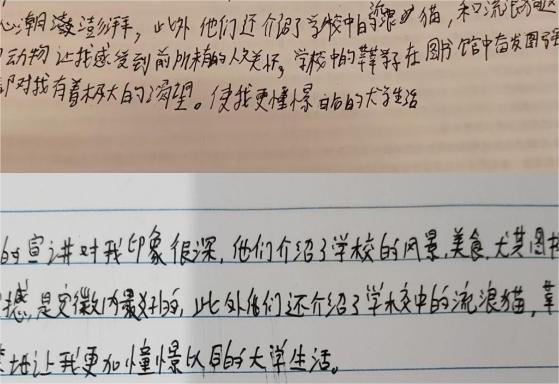 心潮澎湃，此外他们还介绍了学校中的流浪猫，和流浪
动物让我感受到前所未有的人文关怀，学校中的莘莘学子在图书馆中奋发图强
都对我有着极大的渴望。使我更憧憬日后的大学生活
的宣讲对我印象很深，他们介绍了学校的风景，美食，尤其图书
撼，是安徽内最好的，此外他们还介绍了学校中的流浪猫，莘
让我更加憧憬以后的大学生活。